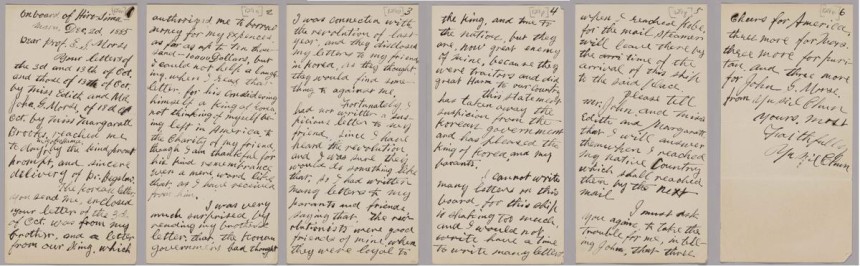 1
On board of Hiro-Sima
Maru, Dec. 2d, 1885
Dear Prof. E. S. Morse
Your letters of
the 3d and 13th of Oct.
and those of 13th of Oct.
by Miss Edith and Mr.
John G. Morse, of 18th of
Oct. by Miss Margarett
Brooks, reached me
to-day by the kind, prompt
prompt, and sincere
delivery of Dr. Bigelow.
The Korean letter
you send me, enclosed
your letter of the 3d
of Oct. was from my
brother, and a letter
from our King, which
2
authorized me to borrow
money for my expences
as far as up to ten thou-
sand dollars, but
I could not help a laugh-
ing when I read that
letter, for his considering
himself a King of Corea,
not thinking of myself be-
ing left in America to
the Charity of my friend,
though I am thankful for
his kind remembrance
even a mere word like
that, as I have received
from him.
I was very
much surprised by
reading my brother's
letter, that, the Korean
government had thought
3
I was connection with
the revolution of last
year, and they disclosed
my letters to my friends
in Korea, as they thought
they would find some-
thing to against me.
Fortunately I
had not written a sus-
picious letter to any
friend, since I have
heard the revolution
and I was sure they
would do something like
that, so I had written
many letters to my
parants and friends
saying that, the rev-
olutionists were good
friends of mine when
they were loyal to
4
the King, and true to
the nation, but they
are, now great enemy
of mine, because they
were traitors and did
great Harm to our country
this statement
has taken away the
suspicion from the
Korean government
and has pleased the
King of Korea and my
parants.
I cannot write
many letters on this
board, for this ship
is shaking too much,
and I would not
write have a time
to write many letters
5
when I reached Kobe,
for the mail steamers
will leave there by
the time of the
arrival of this ship
to the said place.
Please tell
Mr. John and Miss
Edith and Margarett
that I will answer
them when I reached
my native Country
which shall reached
them by the next
mail.
I must ask
you again, to take the
trouble for me, in tell-
my John, that three
6
Cheers for America,
three more for Morse,
three more for puri-
tan, and three more
for John G. Morse,
from Yu Kil Chun
Yours, most
Faithfully
Yu Kil Chun